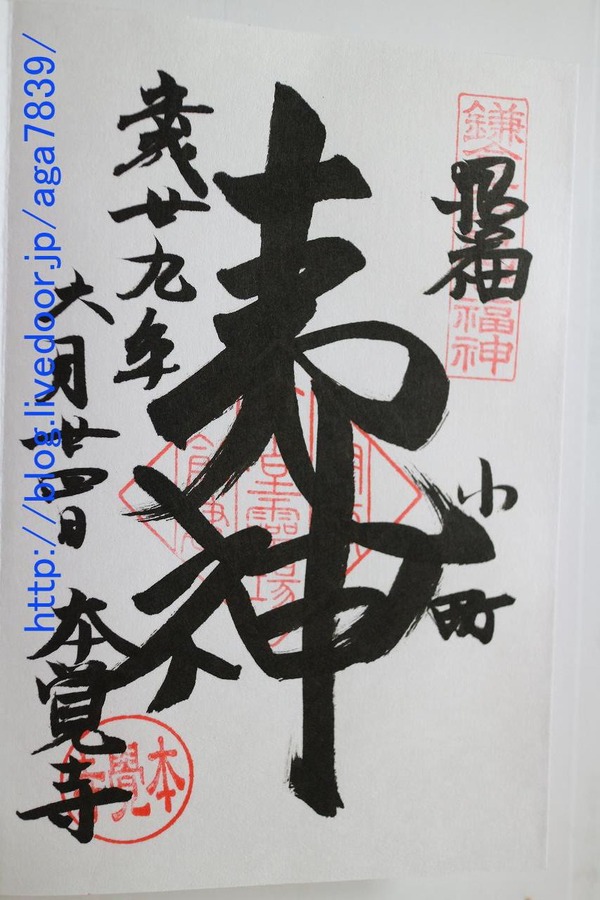 招福
鎌倉
福神
小町
夷神
平成廿九年
六月廿四日
本覚寺
本覺寺
靈場
http://blog.livedoor.jp/aga7839/